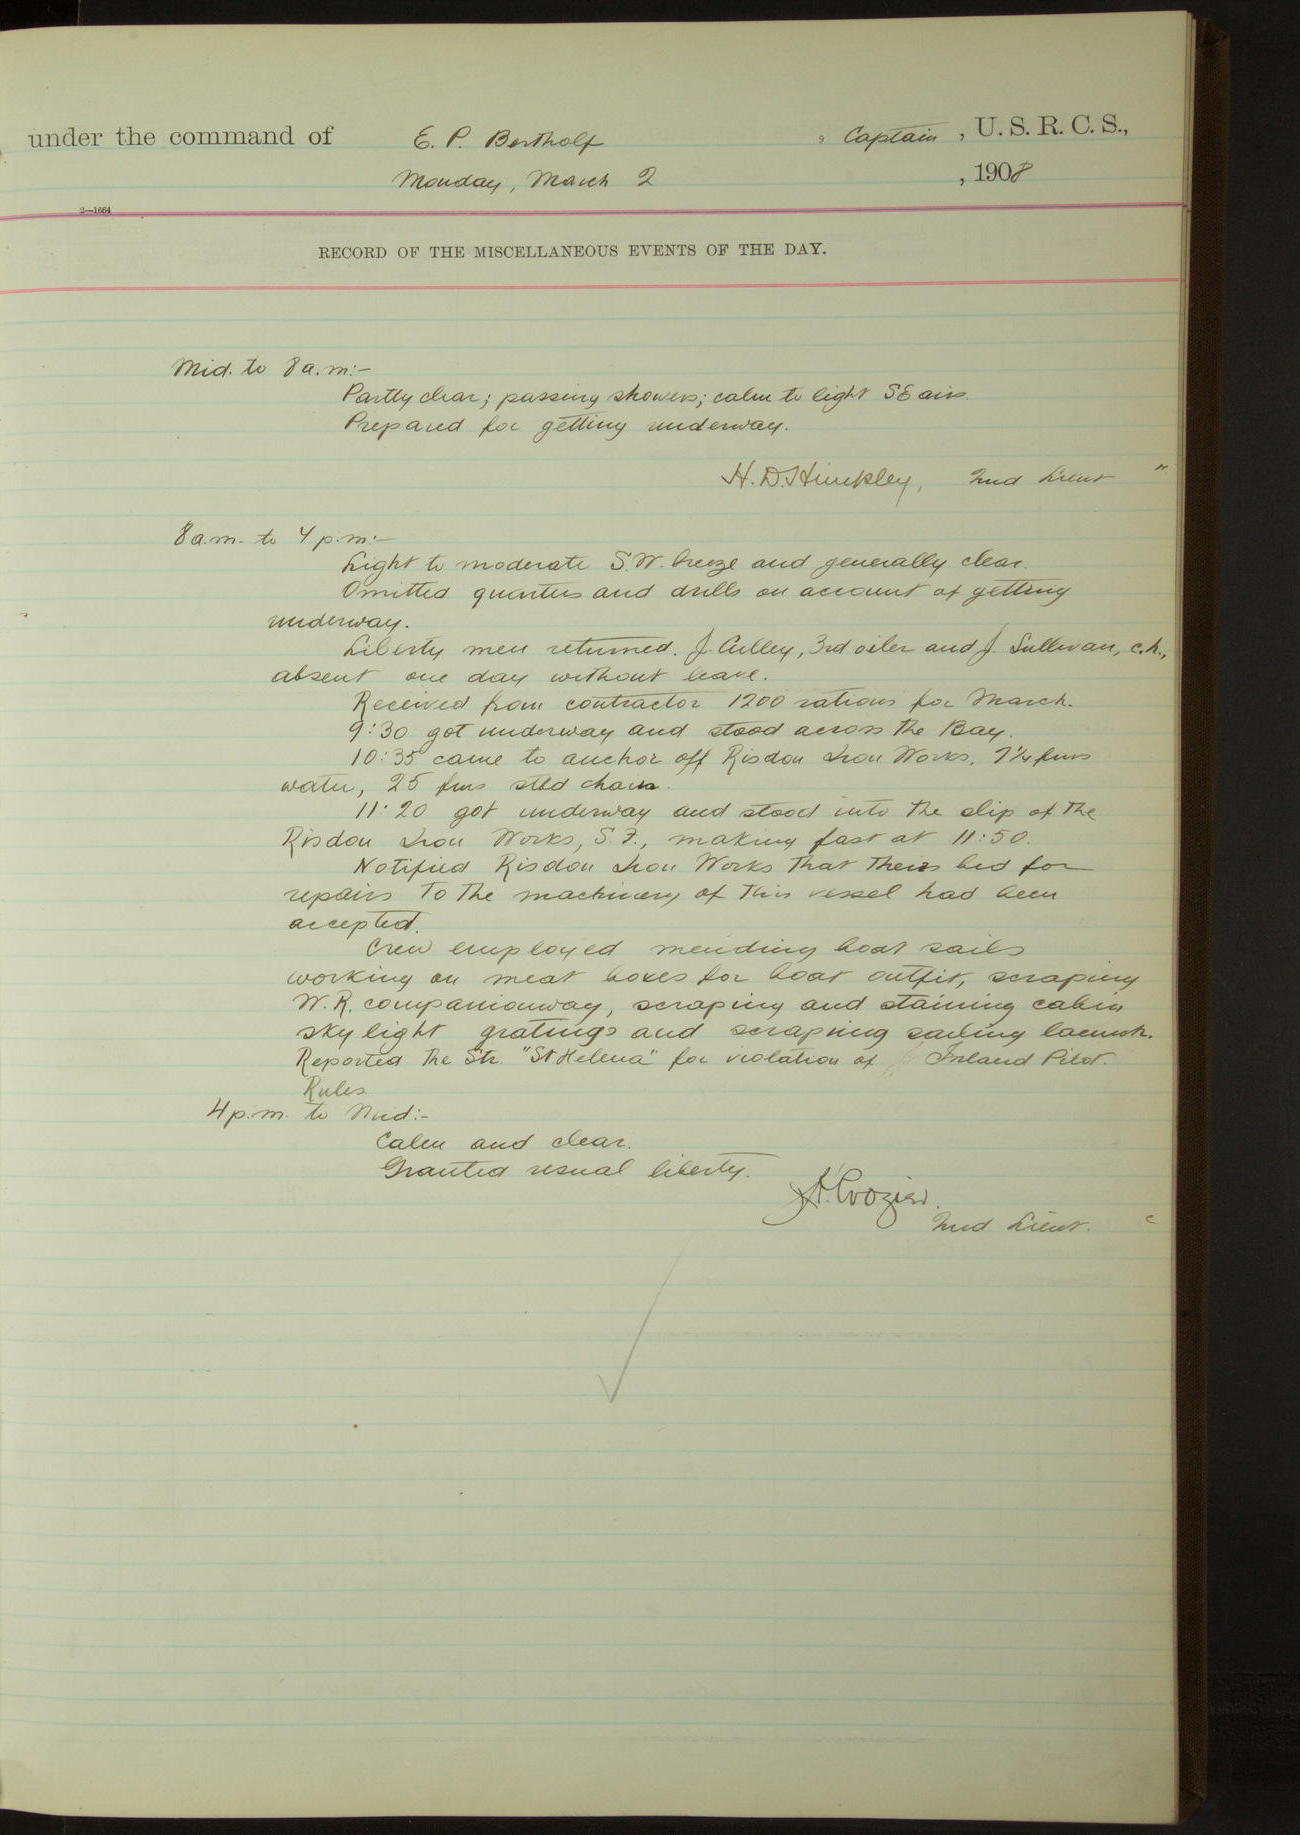 under the command of E. P. Bertholf , Captain , U. S. R. C. S.,
Monday, March 2 , 1908
2—1664
RECORD OF THE MISCELLANEOUS EVENTS OF THE DAY.
Mid. to 8 a.m:-
Partly clear; passing showers; calm to light SE airs.
Prepared for getting underway.
H. D. Hinckley, 2nd Lieut "
8 a.m. to 4 p.m:-
Light to moderate S.W. breeze and generally clear.
Omitted quarters and drills on account of getting
underway.
Liberty men returned. J. Culley, 3rd oiler and J. Sullivan, c.h.,
absent one day without leave.
Received from contractor 1200 rations for March.
9:30 got underway and stood across the Bay.
10:35 came to anchor off Risdon Iron Works, 7¼ fms
water, 25 fms stbd chain.
11:20 got underway and stood into the slip of the
Risdon Iron Works, S.F., making fast at 11:50.
Notified Risdon Iron Works that their bid for
repairs to the machinery of this vessel had been
accepted.
Crew employed mending boat sails
working on meat boxes for boat outfit, scraping
W.R. companionway, scraping and staining cabin
skylight gratings and scraping sailing launch.
Reported the Str. "St Helena" for violation of Inland Pilot.
Rules
4 p.m. to Mid:-
Calm and clear.
Granted usual liberty.
Crozier.
2nd Lieut.